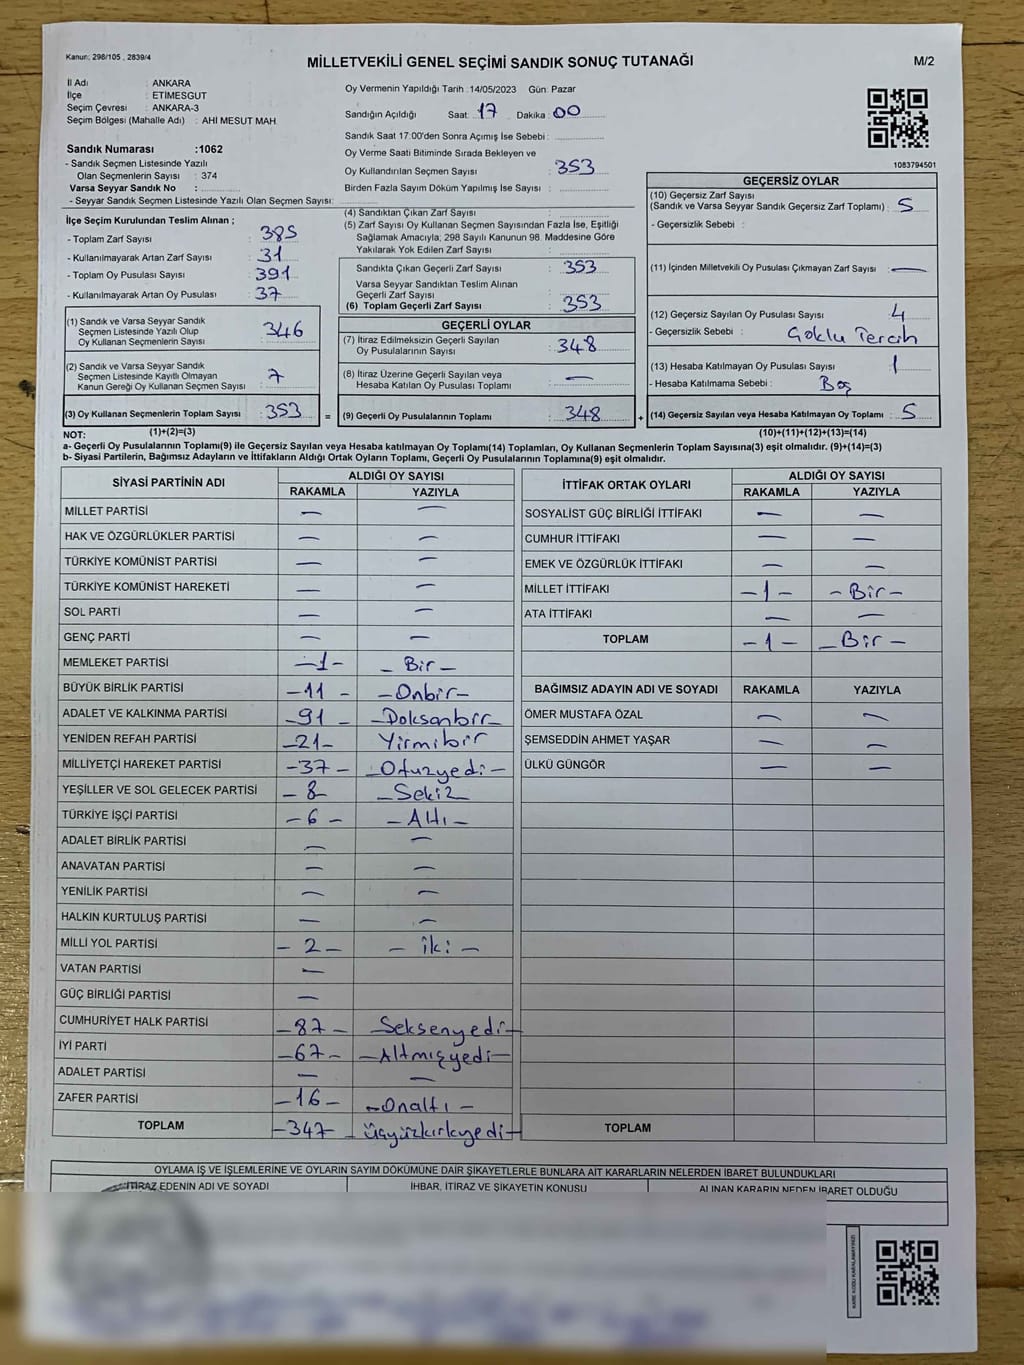 Kanun; 298/105 , 2839/4
MİLLETVEKİLİ GENEL SEÇİMİ SANDIK SONUÇ TUTANAĞI
M/2
İl Adı : ANKARA
İlçe : ETİMESGUT
Seçim Çevresi : ANKARA-3
Seçim Bölgesi (Mahalle Adı) : AHI MESUT MAH.
Sandık Numarası :1062
- Sandık Seçmen Listesinde Yazılı
Olan Seçmenlerin Sayısı : 374
Varsa Seyyar Sandık No :
- Seyyar Sandık Seçmen Listesinde Yazılı Olan Seçmen Sayısı:
Oy Vermenin Yapıldığı Tarih :14/05/2023 Gün: Pazar
Sandığın Açıldığı Saat: 17 Dakika: 00
Sandık Saat 17:00'den Sonra Açımış İse Sebebi :
Oy Verme Saati Bitiminde Sırada Bekleyen ve
Oy Kullandırılan Seçmen Sayısı : 353
Birden Fazla Sayım Döküm Yapılmış İse Sayısı :
1083794501
İlçe Seçim Kurulundan Teslim Alınan ;
- Toplam Zarf Sayısı : 385
- Kullanılmayarak Artan Zarf Sayısı : 31
- Toplam Oy Pusulası Sayısı : 391
- Kullanılmayarak Artan Oy Pusulası : 37
(1) Sandık ve Varsa Seyyar Sandık
Seçmen Listesinde Yazılı Olup
Oy Kullanan Seçmenlerin Sayısı : 346
(2) Sandık ve Varsa Seyyar Sandık
Seçmen Listesinde Kayıtlı Olmayan
Kanun Gereği Oy Kullanan Seçmen Sayısı : 7
(3) Oy Kullanan Seçmenlerin Toplam Sayısı : 353
(1)+(2)=(3)
(4) Sandıktan Çıkan Zarf Sayısı :
(5) Zarf Sayısı Oy Kullanan Seçmen Sayısından Fazla İse, Eşitliği
Sağlamak Amacıyla; 298 Sayılı Kanunun 98. Maddesine Göre
Yakılarak Yok Edilen Zarf Sayısı :
Sandıkta Çıkan Geçerli Zarf Sayısı : 353
Varsa Seyyar Sandıktan Teslim Alınan
Geçerli Zarf Sayısı :
(6) Toplam Geçerli Zarf Sayısı : 353
GEÇERLİ OYLAR
(7) İtiraz Edilmeksizin Geçerli Sayılan
Oy Pusulalarının Sayısı : 348
(8) İtiraz Üzerine Geçerli Sayılan veya
Hesaba Katılan Oy Pusulası Toplamı : —
= (9) Geçerli Oy Pusulalarının Toplamı : 348 +
GEÇERSİZ OYLAR
(10) Geçersiz Zarf Sayısı
(Sandık ve Varsa Seyyar Sandık Geçersiz Zarf Toplamı) : 5
- Geçersizlik Sebebi :
(11) İçinden Milletvekili Oy Pusulası Çıkmayan Zarf Sayısı : —
(12) Geçersiz Sayılan Oy Pusulası Sayısı : 4
- Geçersizlik Sebebi : Çoklu Tercih
(13) Hesaba Katılmayan Oy Pusulası Sayısı : 1
- Hesaba Katılmama Sebebi : Boş
(14) Geçersiz Sayılan veya Hesaba Katılmayan Oy Toplamı : 5
(10)+(11)+(12)+(13)=(14)
NOT:
a- Geçerli Oy Pusulalarının Toplamı(9) ile Geçersiz Sayılan veya Hesaba katılmayan Oy Toplamı(14) Toplamları, Oy Kullanan Seçmenlerin Toplam Sayısına(3) eşit olmalıdır. (9)+(14)=(3)
b- Siyasi Partilerin, Bağımsız Adayların ve İttifakların Aldığı Ortak Oyların Toplamı, Geçerli Oy Pusulalarının Toplamına(9) eşit olmalıdır.
SİYASİ PARTİNİN ADI ALDIĞI OY SAYISI
RAKAMLA YAZIYLA
MİLLET PARTİSİ — —
HAK VE ÖZGÜRLÜKLER PARTİSİ — —
TÜRKİYE KOMÜNİST PARTİSİ — —
TÜRKİYE KOMÜNİST HAREKETİ — —
SOL PARTİ — —
GENÇ PARTİ — —
MEMLEKET PARTİSİ -1- - Bir -
BÜYÜK BİRLİK PARTİSİ -11- -Onbir-
ADALET VE KALKINMA PARTİSİ -91- -Doksanbir-
YENİDEN REFAH PARTİSİ -21- Yirmibir
MİLLİYETÇİ HAREKET PARTİSİ -37- -Otuzyedi-
YEŞİLLER VE SOL GELECEK PARTİSİ -8- -Sekiz
TÜRKİYE İŞÇİ PARTİSİ -6- -Altı-
ADALET BİRLİK PARTİSİ — —
ANAVATAN PARTİSİ — —
YENİLİK PARTİSİ — —
HALKIN KURTULUŞ PARTİSİ — —
MİLLİ YOL PARTİSİ -2- -İki-
VATAN PARTİSİ —
GÜÇ BİRLİĞİ PARTİSİ —
CUMHURİYET HALK PARTİSİ -87- -Seksenyedi-
İYİ PARTİ -67- -Altmışyedi-
ADALET PARTİSİ — —
ZAFER PARTİSİ -16- -Onaltı-
TOPLAM -347- -Üçyüzkırkyedi-
İTTİFAK ORTAK OYLARI ALDIĞI OY SAYISI
RAKAMLA YAZIYLA
SOSYALİST GÜÇ BİRLİĞİ İTTİFAKI — —
CUMHUR İTTİFAKI — —
EMEK VE ÖZGÜRLÜK İTTİFAKI — —
MİLLET İTTİFAKI -1- -Bir-
ATA İTTİFAKI — —
TOPLAM -1- -Bir-
BAĞIMSIZ ADAYIN ADI VE SOYADI RAKAMLA YAZIYLA
ÖMER MUSTAFA ÖZAL — —
ŞEMSEDDİN AHMET YAŞAR — —
ÜLKÜ GÜNGÖR — —
TOPLAM
OYLAMA İŞ VE İŞLEMLERİNE VE OYLARIN SAYIM DÖKÜMÜNE DAİR ŞİKAYETLERLE BUNLARA AİT KARARLARIN NELERDEN İBARET BULUNDUKLARI
İTİRAZ EDENİN ADI VE SOYADI İHBAR, İTİRAZ VE ŞİKAYETİN KONUSU ALINAN KARARIN NEDEN İBARET OLDUĞU
KARE KODU KARALAMAYINIZ!